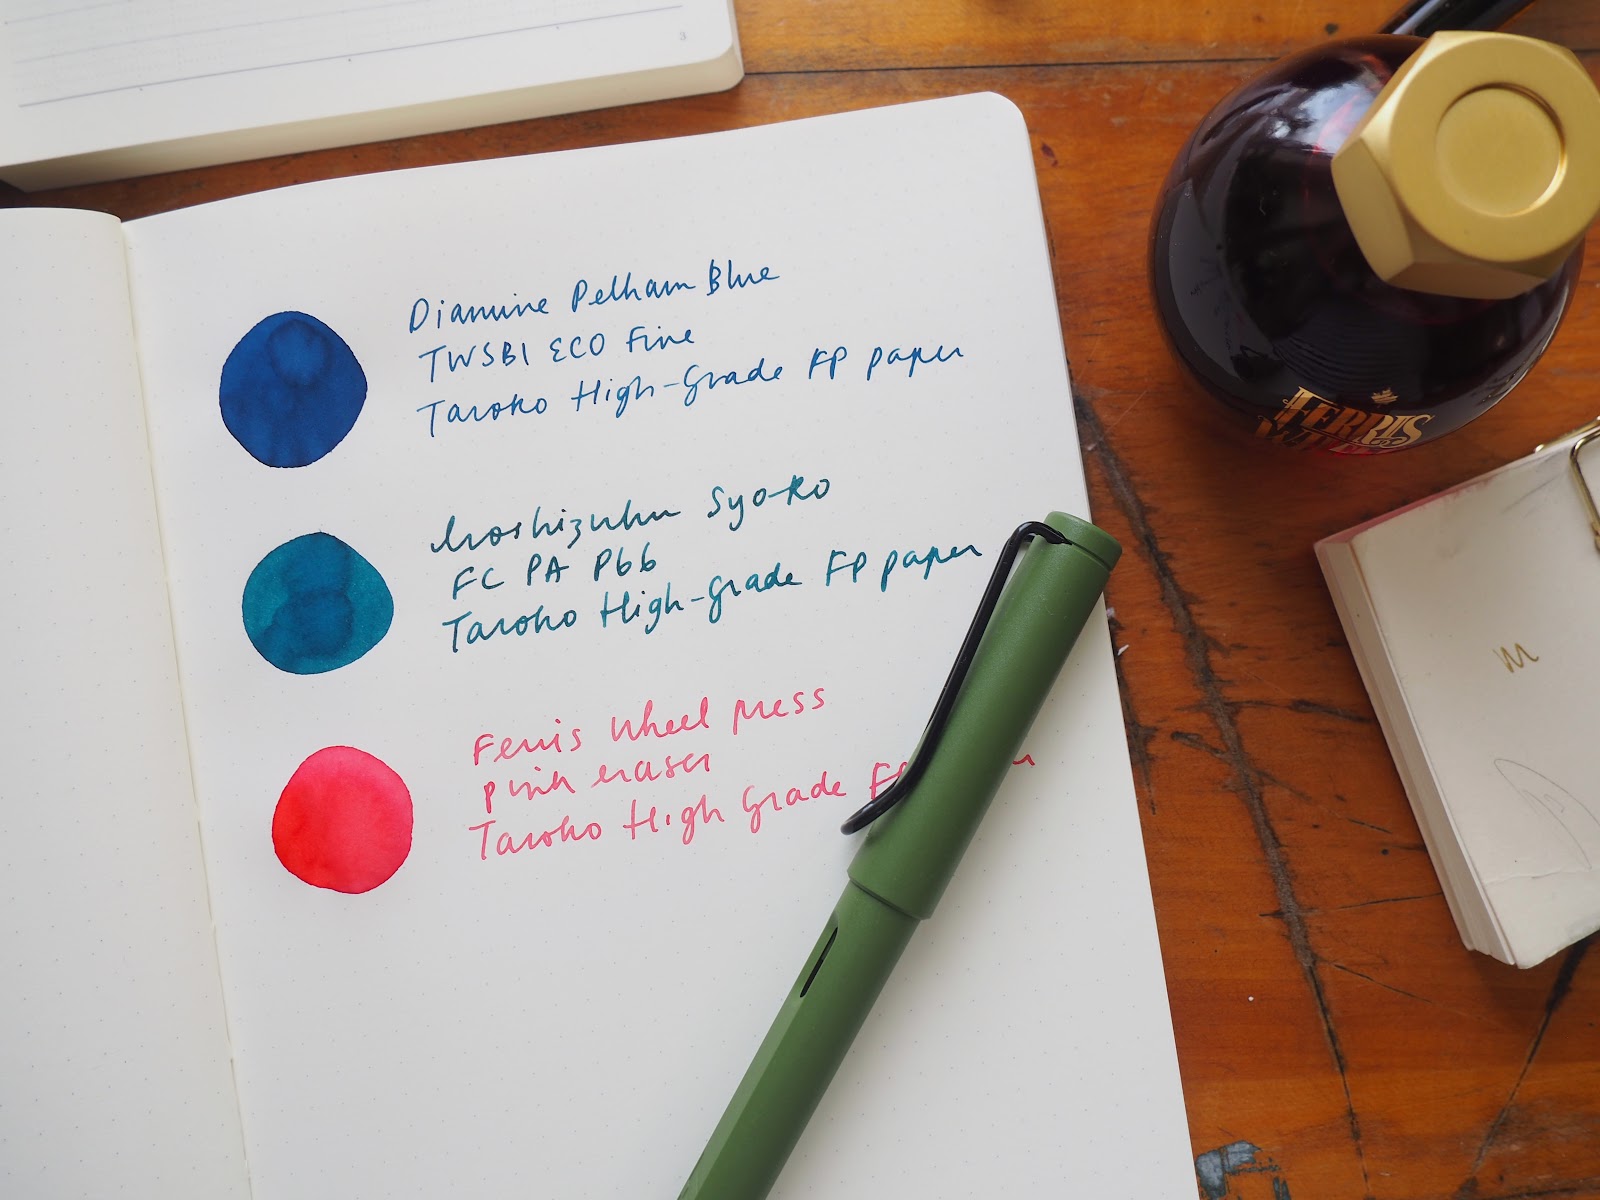 3
Diamine Pelham Blue
TWSBI ECO Fine
Taroko High-Grade FP paper
Iroshizuku Syo-Ro
FC PA P66
Taroko High-Grade FP paper
Ferris Wheel Press
pink eraser
Taroko High Grade
FERRIS
m